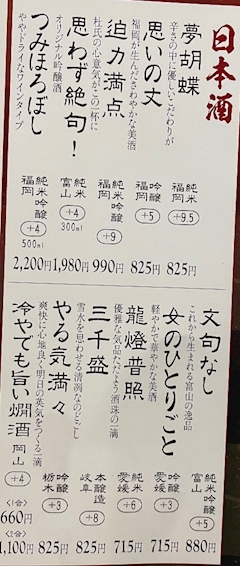 日本酒
夢胡蝶
辛さの中に優しいこだわりが
純米
福岡
+9.5
825円
思いの丈
福岡が生んださわやかな美酒
吟醸
福岡
+5
825円
迫力満点
杜氏の心意気がこの一杯に
純米吟醸
福岡
+9
990円
思わず絶句!
オリジナル吟醸酒
純米
富山
+4
300ml
1,980円
つみほろぼし
ややドライなワインタイプ
純米吟醸
福岡
+4
500ml
2,200円
文句なし
これから生まれる富山の逸品
吟醸
富山
+5
880円
女のひとりごと
軽やかで華やかな美酒
吟醸
愛媛
+3
715円
龍燈普照
優雅な気品ただよう酒珠の一滴
純米
愛媛
+6
715円
三千盛
雪水を思わせる清冽なのどごし
本醸造
岐阜
+8
825円
やる気満々
爽快に心地良く明日の英気をつくる一滴
吟醸
栃木
+3
825円
冷やでも旨い燗酒
岡山
+4
〈1合〉
660円
〈2合〉
1,100円